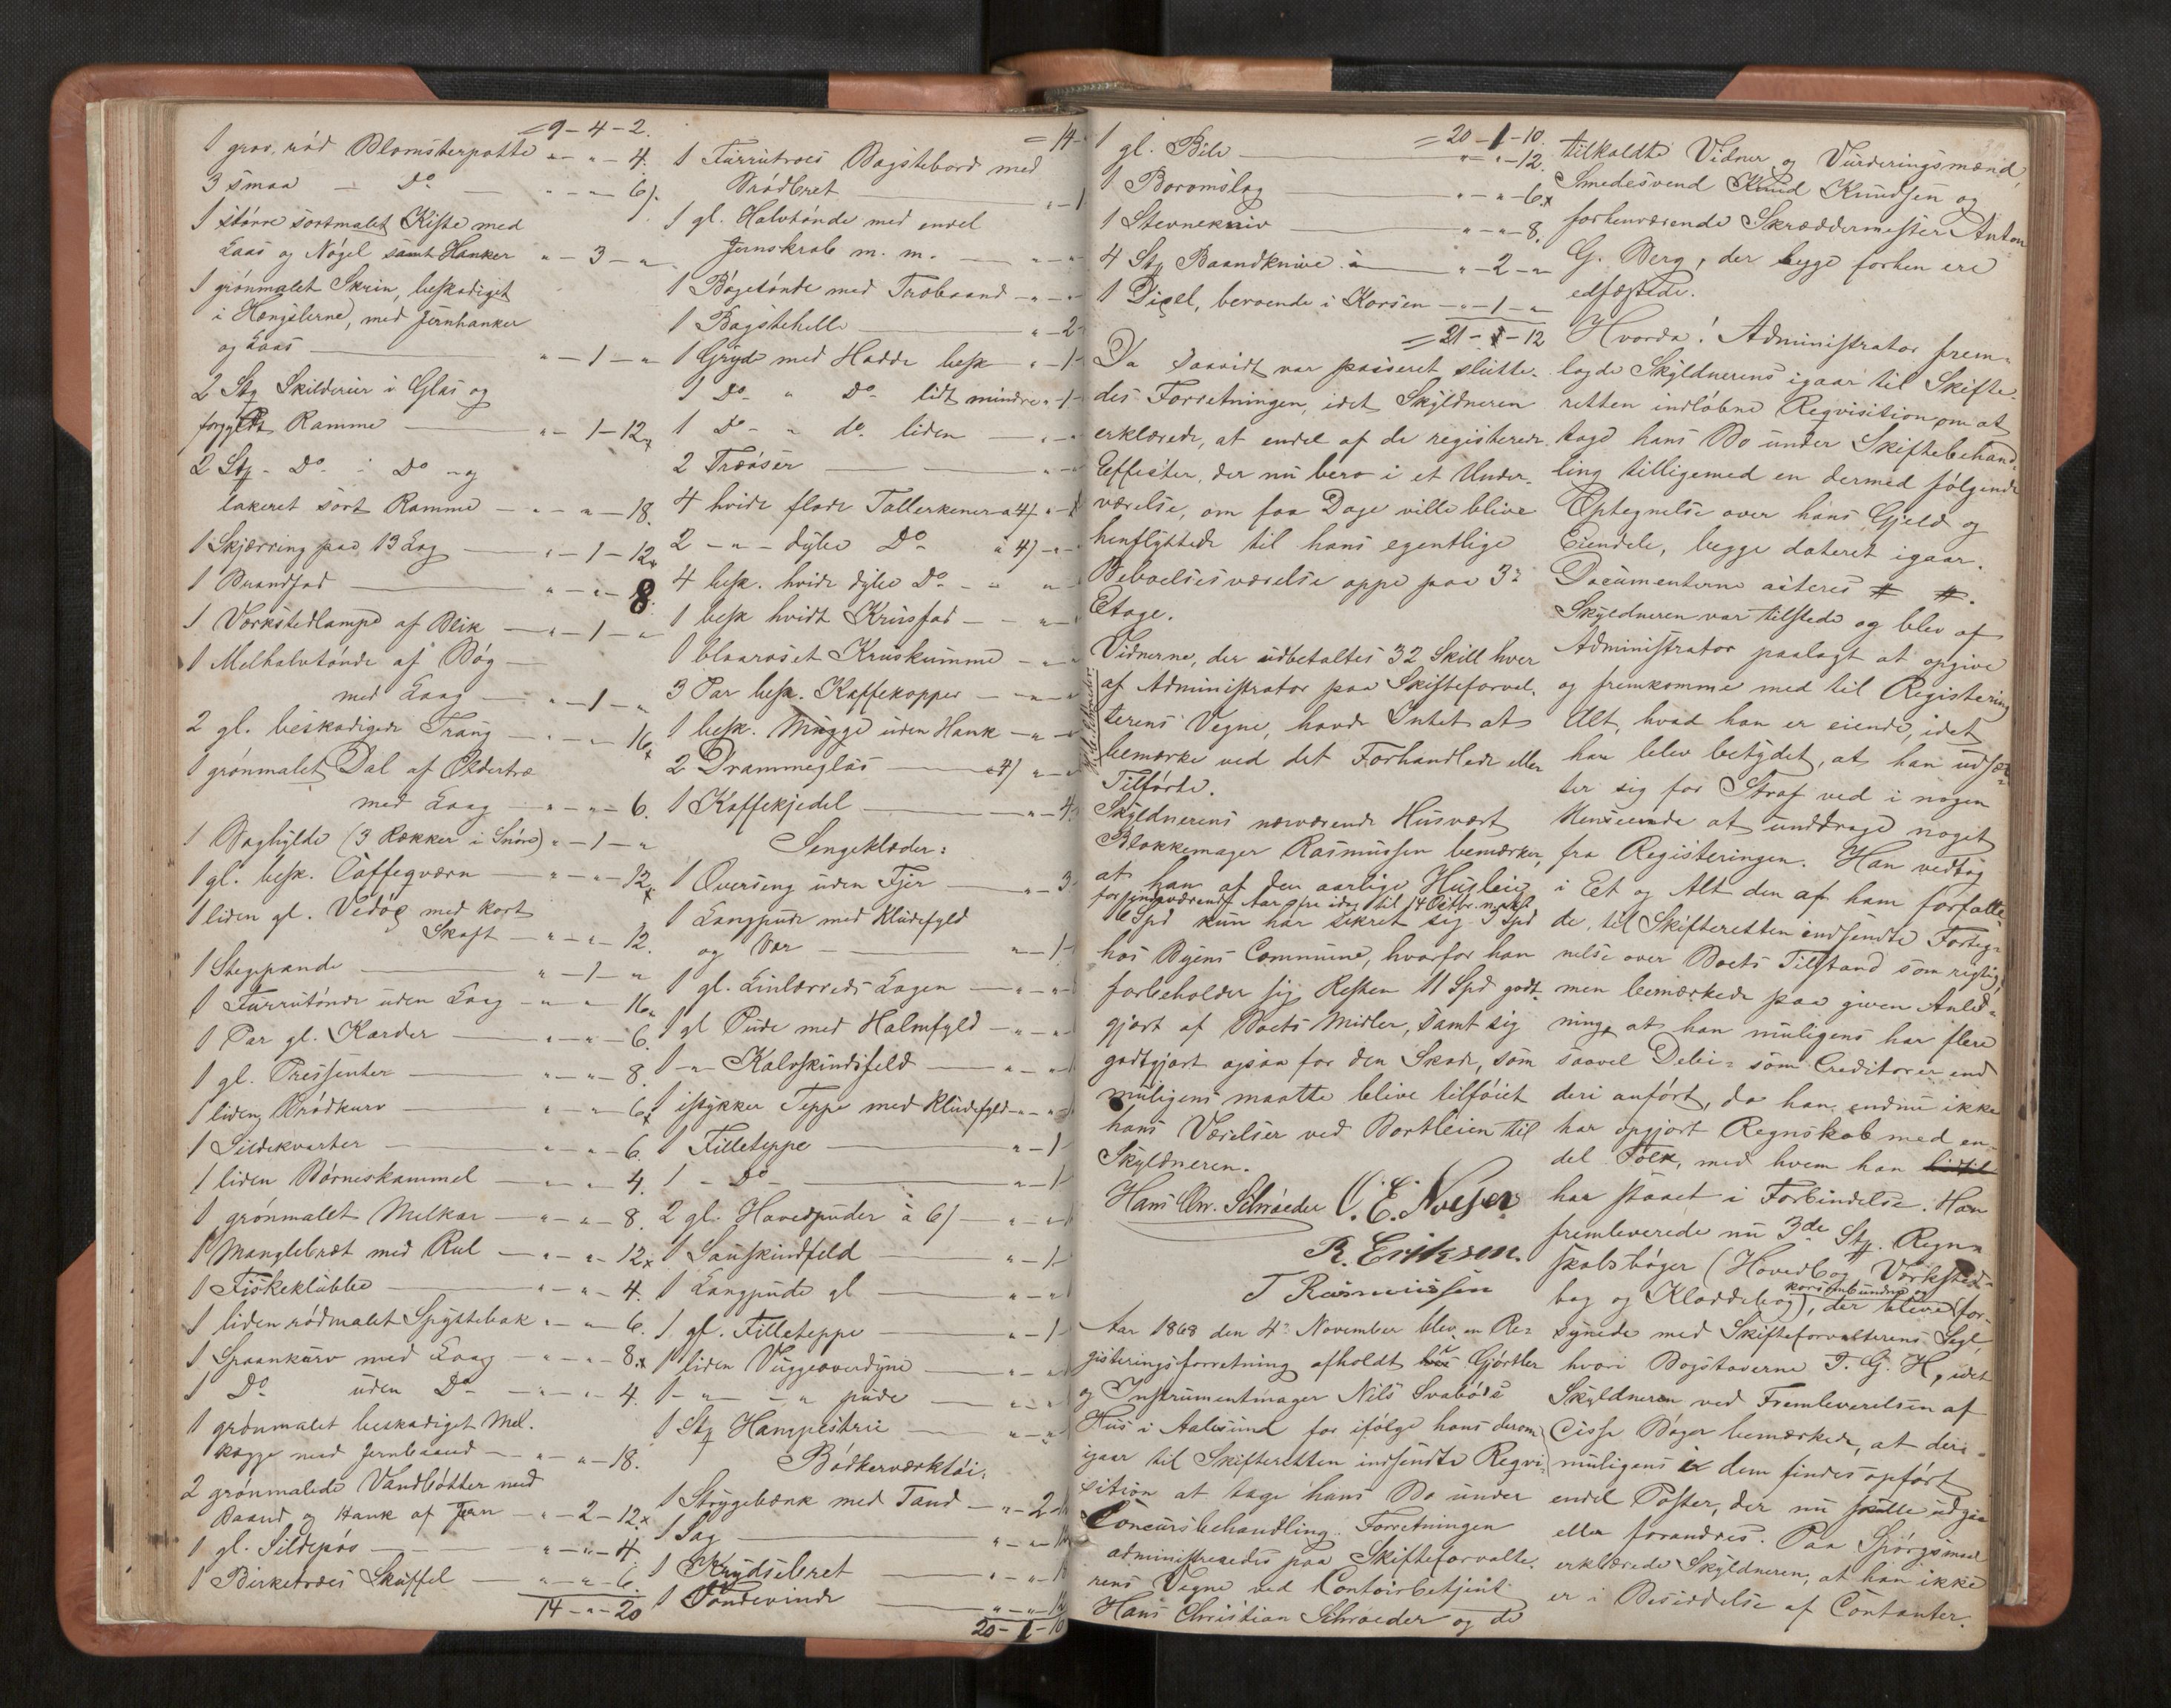 = 9 - 4 - 2.
1 grov. rød Blomsterpotte " - " - 4.
3 smaa - Do - " - " - 6
1 større sortmalet Kiste med
Laas og Nøgel samt Hanker " - 3 - "
1 grønmalet Skrin, beskadiget
i Hængslerne, med Jernhanker
og Laas " - 1 - "
2 Stz Skilderier i Glas og
forgyldt Ramme " - 1 - 12
2 Stz - Do - i Do - og
lakeret sort Ramme " - " - 18.
1 Skjærring paa 13 Lag " - 1 - 12
1 Brandfad " - " - 8
1 Værkstedlampe af Blik " - 1 - "
1 Melhalvtønde af Bøg
med Laag " - 1 - "
2 gl. beskadigede Traug " - " - 16
1 grønmalet Dal af Oldertræ
med Laag " - " - 6.
1 Baghylde (3 Rækker i Snøre) " - 1 - "
1 gl. besk. Caffeqværn " - " - 12
1 liden gl. Vedøx med kort
Skaft " - " - 12.
1 Stegepande " - 1 - "
1 Furrutønde uden Laag " - " - 16
1 Par gl. Karder " - " - 6.
1 gl. Pressenter " - " - 8.
1 liden Brødkurv " - " - 6
1 Sildekvarter " - " - 6.
1 liden Børneskammel " - " - 4.
1 grønmalet Melkar " - " - 8.
1 Manglebræt med Rul " - " - 12
1 Fiskeklubbe " - " - 4.
1 liden rødmalet Spyttebak " - " - 6.
1 Spaankurv med Laag " - " - 8
1 Do uden Do " - " - 4.
1 grønmalet beskadiget Mel.
kagge med Jernbaand " - " - 18.
2 grønmalede Vandbøtter med
Baand og Hank af Jern " - 2 - 12
1 gl. Sildepøs " - " - 4
1 Birketræes Skuffel " - " - 6
14 - " - 20
= 14 -
1 Furrutræes Bagstebord med
Brødbret " - 1
1 gl. Halvtønde med endel
Jernskrab m. m. " - "
1 Bøgetønde med Træbaand " - "
1 Bagstehelle " - 2
1 Gryde med Hadde besk " - 1
1 Do " Do lidt mindre " - 1
1 Do - " do. liden " - "
2 Træøser " - "
4 hvide flade Tallerkener a 4
2 - " - dybe Do à 4
4 besk. hvide dybe Do " - "
1 besk hvidt Krusfad " - "
1 blaaroset Kruskumme " - "
3 Par besk. Kaffekopper " - "
1 besk. Mugge uden Hank " - "
2 Drammeglas a 4
1 Kaffekjedel " - 4
Sengeklæder:
1 Overseng uden Fjer " - 3
1 Langpude med Kludefyld
og Var " - 1
1 gl. Linlærreds Lagen " - "
1 gl Pude med Halmfyld " - "
1 - " Kalvskindsfeld " - "
1 istykker Teppe med Kludefyld " - "
1 Filleteppe " - 1
1 - Do - " - 1
2 gl. Hovedpuder à 6 " - "
1 Saueskindfeld " - 1
1 Langpude gl " - "
1 gl. Filleteppe " - 1
1 liden Vuggeoverdyne " - "
1 - " - " pude " - "
1 Stz Hampestrie " - "
Bødkerværktøi.
1 Strygebænk med Tand " - 2
1 Sag " - "
1 Krydsebret " - "
1 Tøndevinde " - "
20 - 1 - 10
= 20 - 1 - 10.
1 gl. Bile " - " - 12.
1 Boromslag " - " - 6
1 Stevnekniv " - " - 8.
4 Stz Baandknive à " - 2 - "
1 Dixel, beroende i Korsen " - 1 - "
= 21 - 1 - 12
Da saavidt var passeret slutte-
des Forretningen, idet Skyldneren
erklærede, at endel af de registerede
Effecter, der nu bero i et Under-
værelse, om faa Dage ville blive
henflyttede til hans egentlige
Beboelsesværelse oppe paa 3die
Etage.
Vidnerne, der udbetaltes 32 Skill hver
af Administrator paa Skifteforval-
terens Vegne, havde Intet at
bemærke ved det Forhandlede eller
Tilførte.
Skyldnerens nærværende Husvært
Blokkemager Rasmussen bemærker,
at han af den aarlige Husleie
for indeværende Aar fra idag til 14 Octbr. næst
6 Spd kun har sikret sig 3 Spd
hos Byens Commune, hvorfor han
forbeholder sig Resten 11 Spd godt-
gjort af Boets Midler, samt sig
godtgjort ogsaa for den Skade, som
muligens maatte blive tilføiet
hans Værelser ved Bortleien til
Skyldneren.
Hans Chr. Schrøeder
R. Eriksen.
J Rasmussen
Aar 1868 den 4de November blev en Re-
gisteringsforretning afholdt hos Gjørtler
og Instrumentmager Nils Svabøes
Hus i Aalesund for ifølge hans derom
igaar til Skifteretten indsendte Reqvi-
sition at tage hans Bo under
Concursbehandling. Forretningen
administreredes paa Skifteforvalte-
rens Vegne ved Contoirbetjent
Hans Christian Schrøeder og de
tilkaldte Vidner og Vurderingsmænd,
Smedesvend Knud Knudsen og
forhenværende Skræddermester Anton
G. Berg, der begge forhen ere
edfæstede.
Hvorda! Administrator frem-
lagde Skyldnerens igaar til Skifte-
retten indløbne Reqvisition om at
tage hans Bo under Skiftebehand-
ling tilligemed en dermed følgende
Optegnelse over hans Gjeld og
Eiendele, begge dateret igaar.
Documenterne acteres # #.
Skyldneren var tilstede og blev af
Administrator paalagt at opgive
og fremkomme med til Registering
Alt, hvad han er eiende, idet
han blev betydet, at han udsæt-
ter sig for Straf ved i nogen
Henseende at unddrage noget
fra Registeringen. Han vedtog
i Eet og Alt den af ham forfatte-
de, til Skifteretten indsendte Forteg-
nelse over Boets Tilstand som rigtig,
men bemærkede paa given Anled-
ning, at han muligens har flere
saavel Debi- som Creditorer end
deri anført, da han endnu ikke
har opgjort Regnskab med en
del Folk, med hvem han
har staaet i Forbindelse. Han
fremleverede nu 3de Stz. Regn-
skabsbøger (Hovedbog, Værksted-
bog og Kladdebog), der bleve korsombundne og for-
synede med Skifteforvalterens Segl,
hvori Bogstaverne T. G. H, idet
Skyldneren ved Fremleverelsen af
disse Bøger bemærkede, at der
muligens i dem findes opført
endel Poster, der nu skulle udgaa
eller forandres. Paa Spørgsmaal
erklærede Skyldneren, at han ikke
er i Besiddelse af Contanter.